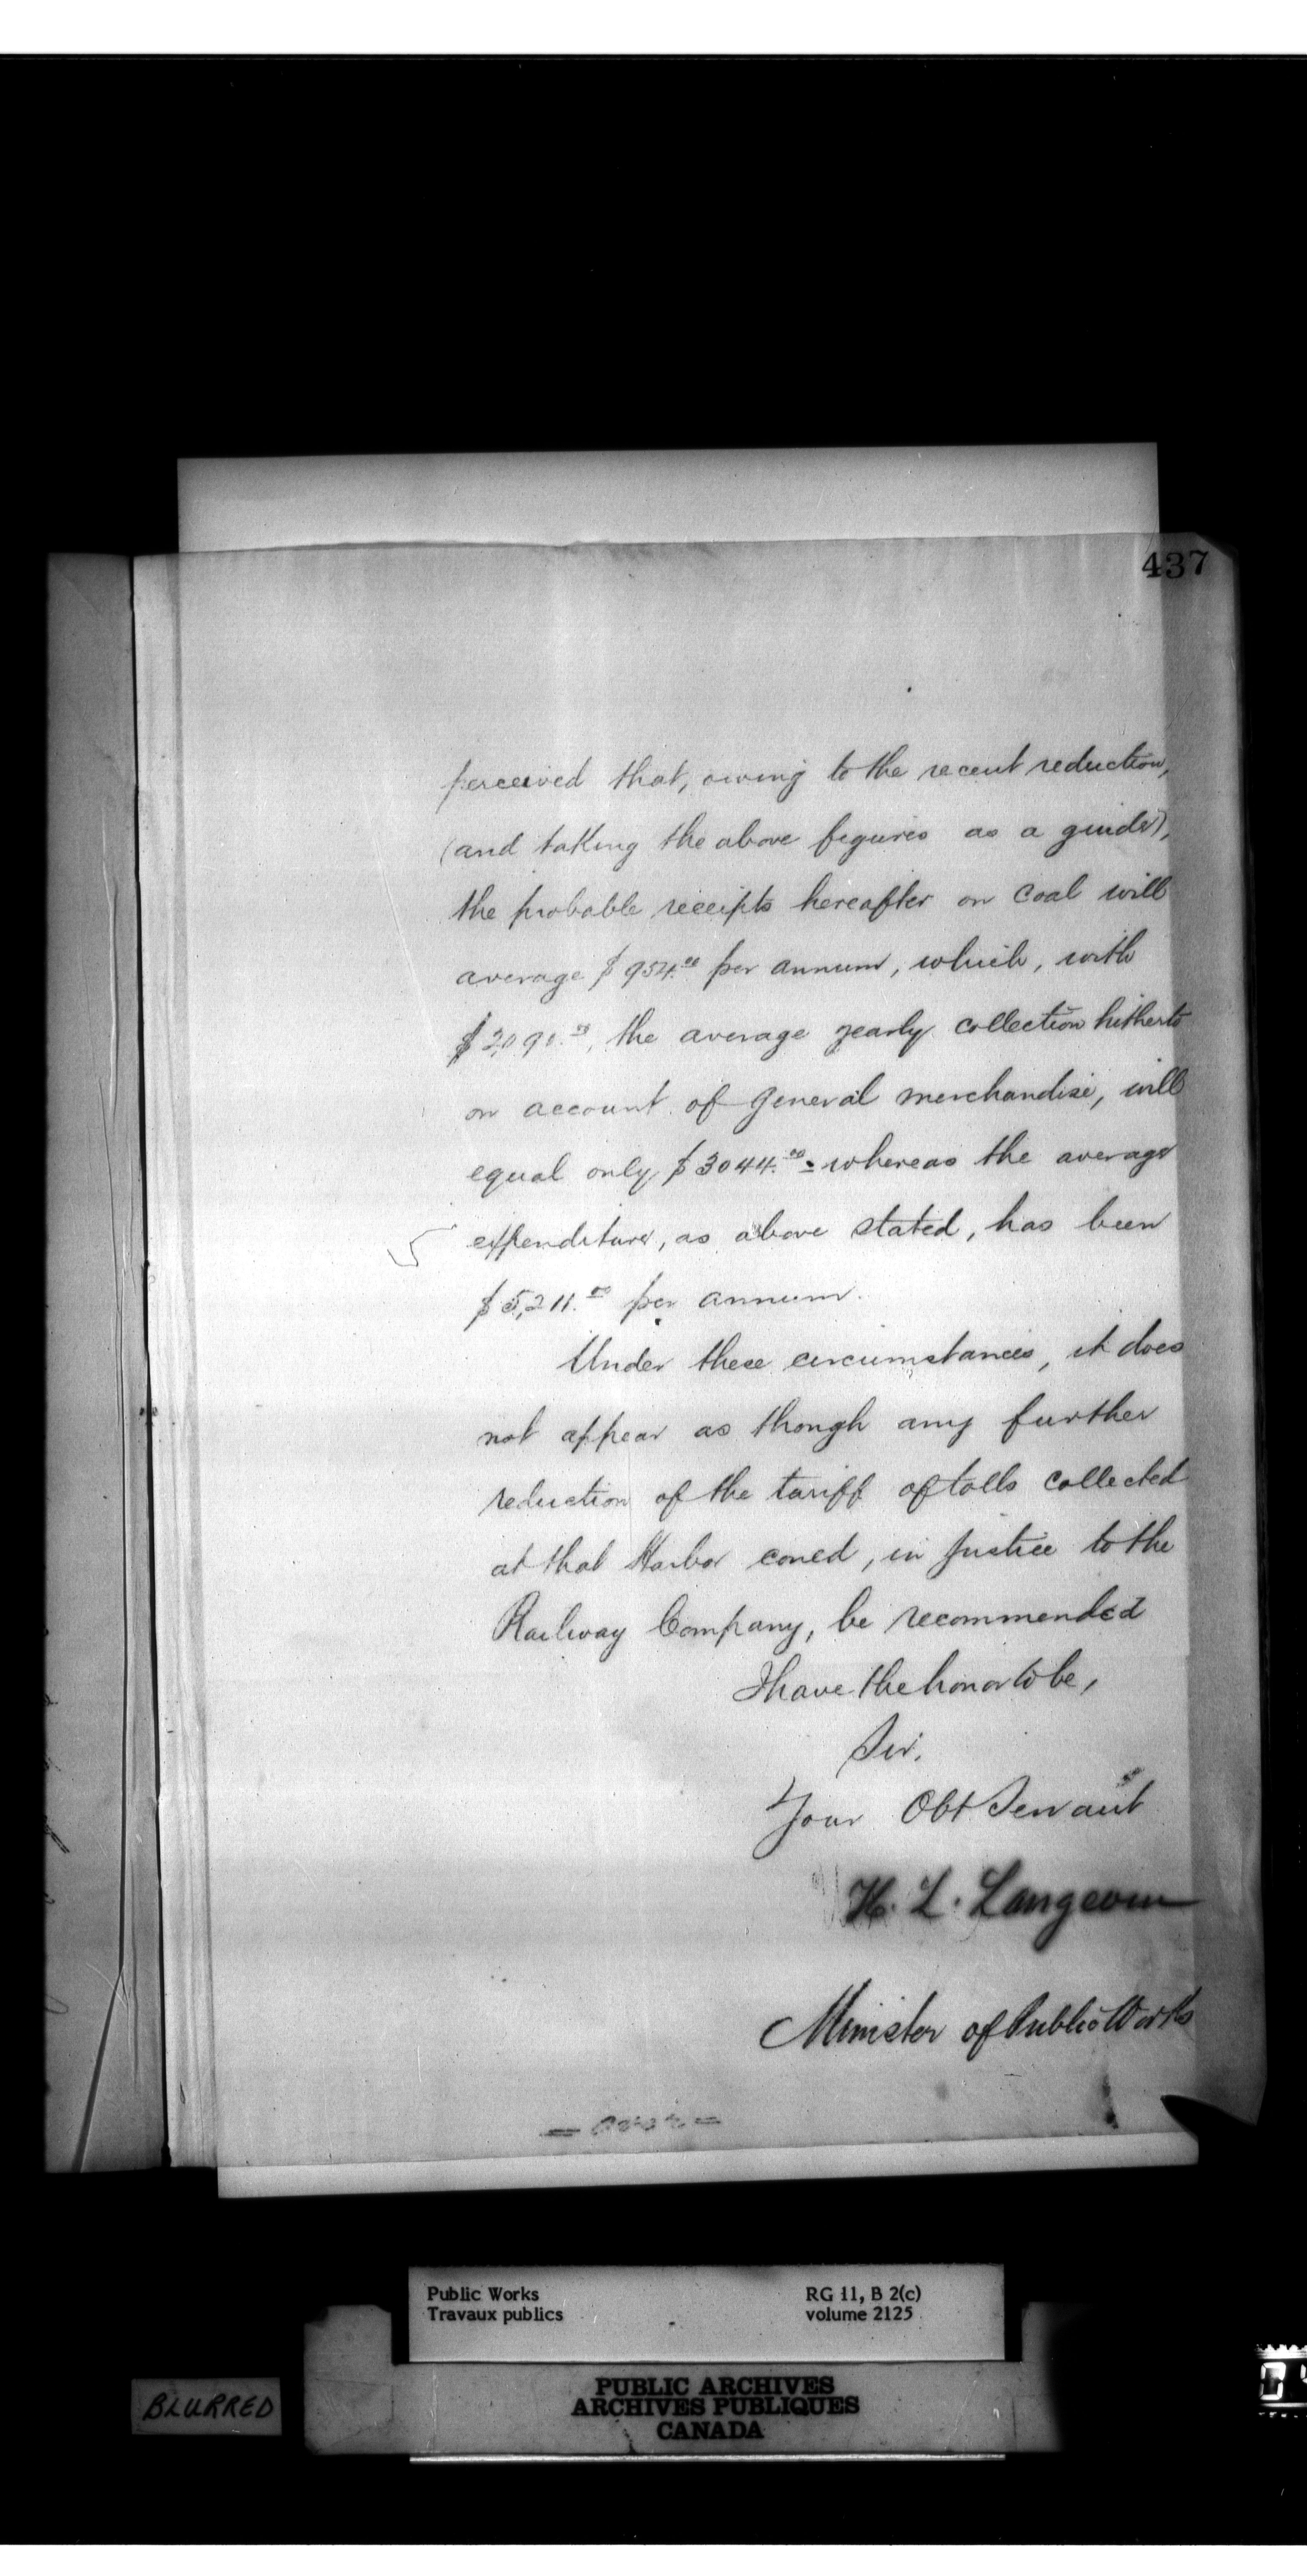 437
perceived that, owing to the recent reduction,
(and taking the above figures as a guide),
the probable receipts hereafter on coal will
average $954.00 per annum, which, with
$2,090.00, the average yearly collection hitherto
on account of general merchandise, will
equal only $3044.00: whereas the average
expenditure, as above stated, has been
$5,211.00 per annum.
Under these circumstances, it does
not appear as though any further
reduction of the tariff of tolls collected
at that Harbor coued, in justice to the
Railway Company, be recommended
I have the honor to be,
Sir,
Your Obt Servant
H. L. Langevin
Minister of Public Works
Public Works
Travaux publics
RG 11, B 2(c)
volume 2125
BLURRED
PUBLIC ARCHIVES
ARCHIVES PUBLIQUES
CANADA